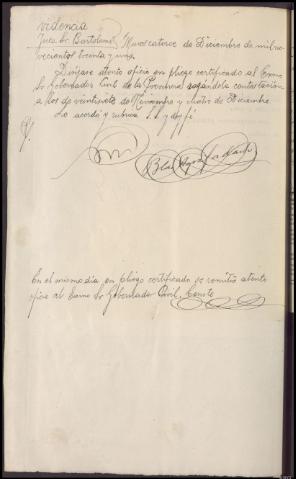 videncia
Juez Sr. Bartolomé Nuevo catorce de Diciembre de mil no
vecientos treinta y uno.
Dirijase atento oficio en pliego certificado al Excmo
Sr Gobernador Civil de la Provincia rogándole contestación
a los de veintisiete de Noviembre y cuatro de Diciembre
Lo acordó y rubrica S.S. y doy fé
En el mismo dia en pliego certificado se remitió atento
oficio al Excmo Sr Gobernador Civil, Consta